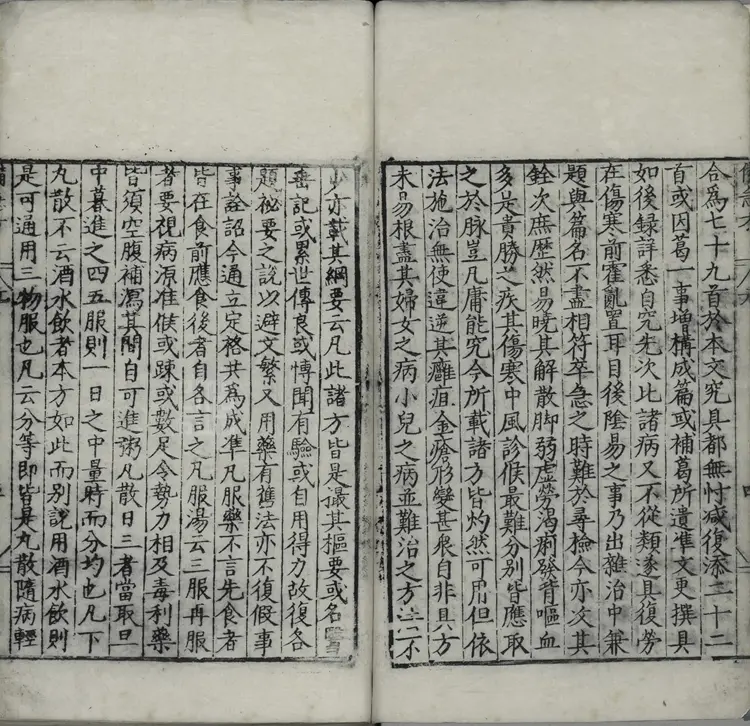 合爲七十九首於本文究具都無忖减復添二十二
首或因葛一事增構成篇或補葛所遺準文更撰具
如後録詳悉自究先次比諸病又不從類遂具復勞
在傷寒前霍亂置耳目後陰易之事乃出雜治中兼
題與篇名不盡相符卒急之時難於尋檢今亦改其
銓次庶歷然易曉其解散脚弱虚勞渴痢發背嘔血
多是貴勝之疾其傷寒中風診候最難分别皆應取
之於脉豈凡庸能究今所載諸方皆灼然可用但依
法施治無使違逆其癰疽金瘡形變甚衆自非具方
未易根盡其婦女之病小兒之病並難治之方法不
少亦載其綱要云凡此諸方皆是撮其樞要或名醫
垂記或累世傳良或博聞有驗或自用得力故復各
題祕要之說以避文繁又用藥有舊法亦不復假事
事詮詔今通立定格共爲成凖凡服藥不言先食者
皆在食前應食後者自各言之凡服湯云三服再服
者要視病源准候或疎或數足令勢力相及毒利藥
皆須空腹補瀉其間自可進粥凡散日三者當取旦
中暮進之四五服則一日之中量時而分均也凡下
丸散不云酒水飲者本方如此而别說用酒水飲則
是可通用三物服也凡云分等即皆是丸散隨病輕